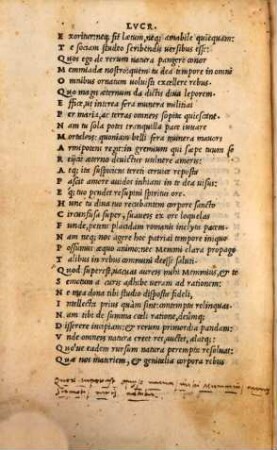 LVCR.
E xoritur: neq; fit lætum, neq; amabile quicquam:
T e sociam studeo scribendis uersibus esse:
Q uos ego de rerum natura pangere conor
M emmiadæ nostro: quem tu dea tempore in omni
O mnibus ornatum uoluisti excellere rebus.
Q uo magis æternum da dictis diua leporem.
E ffice, ut interea fera munera militiai
P er maria, ac terras omneis sopita quiescant.
N am tu sola potes tranquilla pace iuuare
M ortaleis: quoniam belli fera munera mauors
A rmipotens regit: in gremium qui sæpe tuum se
R eijcit æterno deuictus uulnere amoris:
A tq; ita suspiciens tereti ceruice reposta
P ascit amore auidos inhians in te dea uisus:
E q; tuo pendet resupini spiritus ore.
H unc tu diua tuo recubantem corpore sancto
C ircunfusa super, suaueis ex ore loquelas
F unde, petens placidam romanis inclyta pacem.
N am neq; nos agere hoc patriai tempore iniquo
P ossumus æquo animo; nec Memmi clara propago
T alibus in rebus communi deesse saluti.
Q uod superest, uacuas aureis mihi Memmius, & te
S emotum a curis adhibe ueram ad rationem:
N e mea dona tibi studio disposta fideli,
I ntellecta prius quàm sint: contempta relinquas.
N am tibi de summa cœli ratione, deûmq;
D isserere incipiam: & rerum primordia pandam:
V nde omneis natura creet res, auctet, alatq;:
Q uò'ue eadem rursum natura perempta resoluat:
Q uæ nos materiem, & genitalia corpora rebus